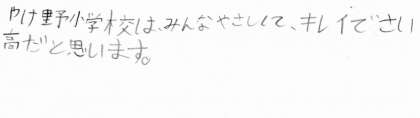 やけ野小学校は、みんなやさしくて、キレイでさい
高だと思います。